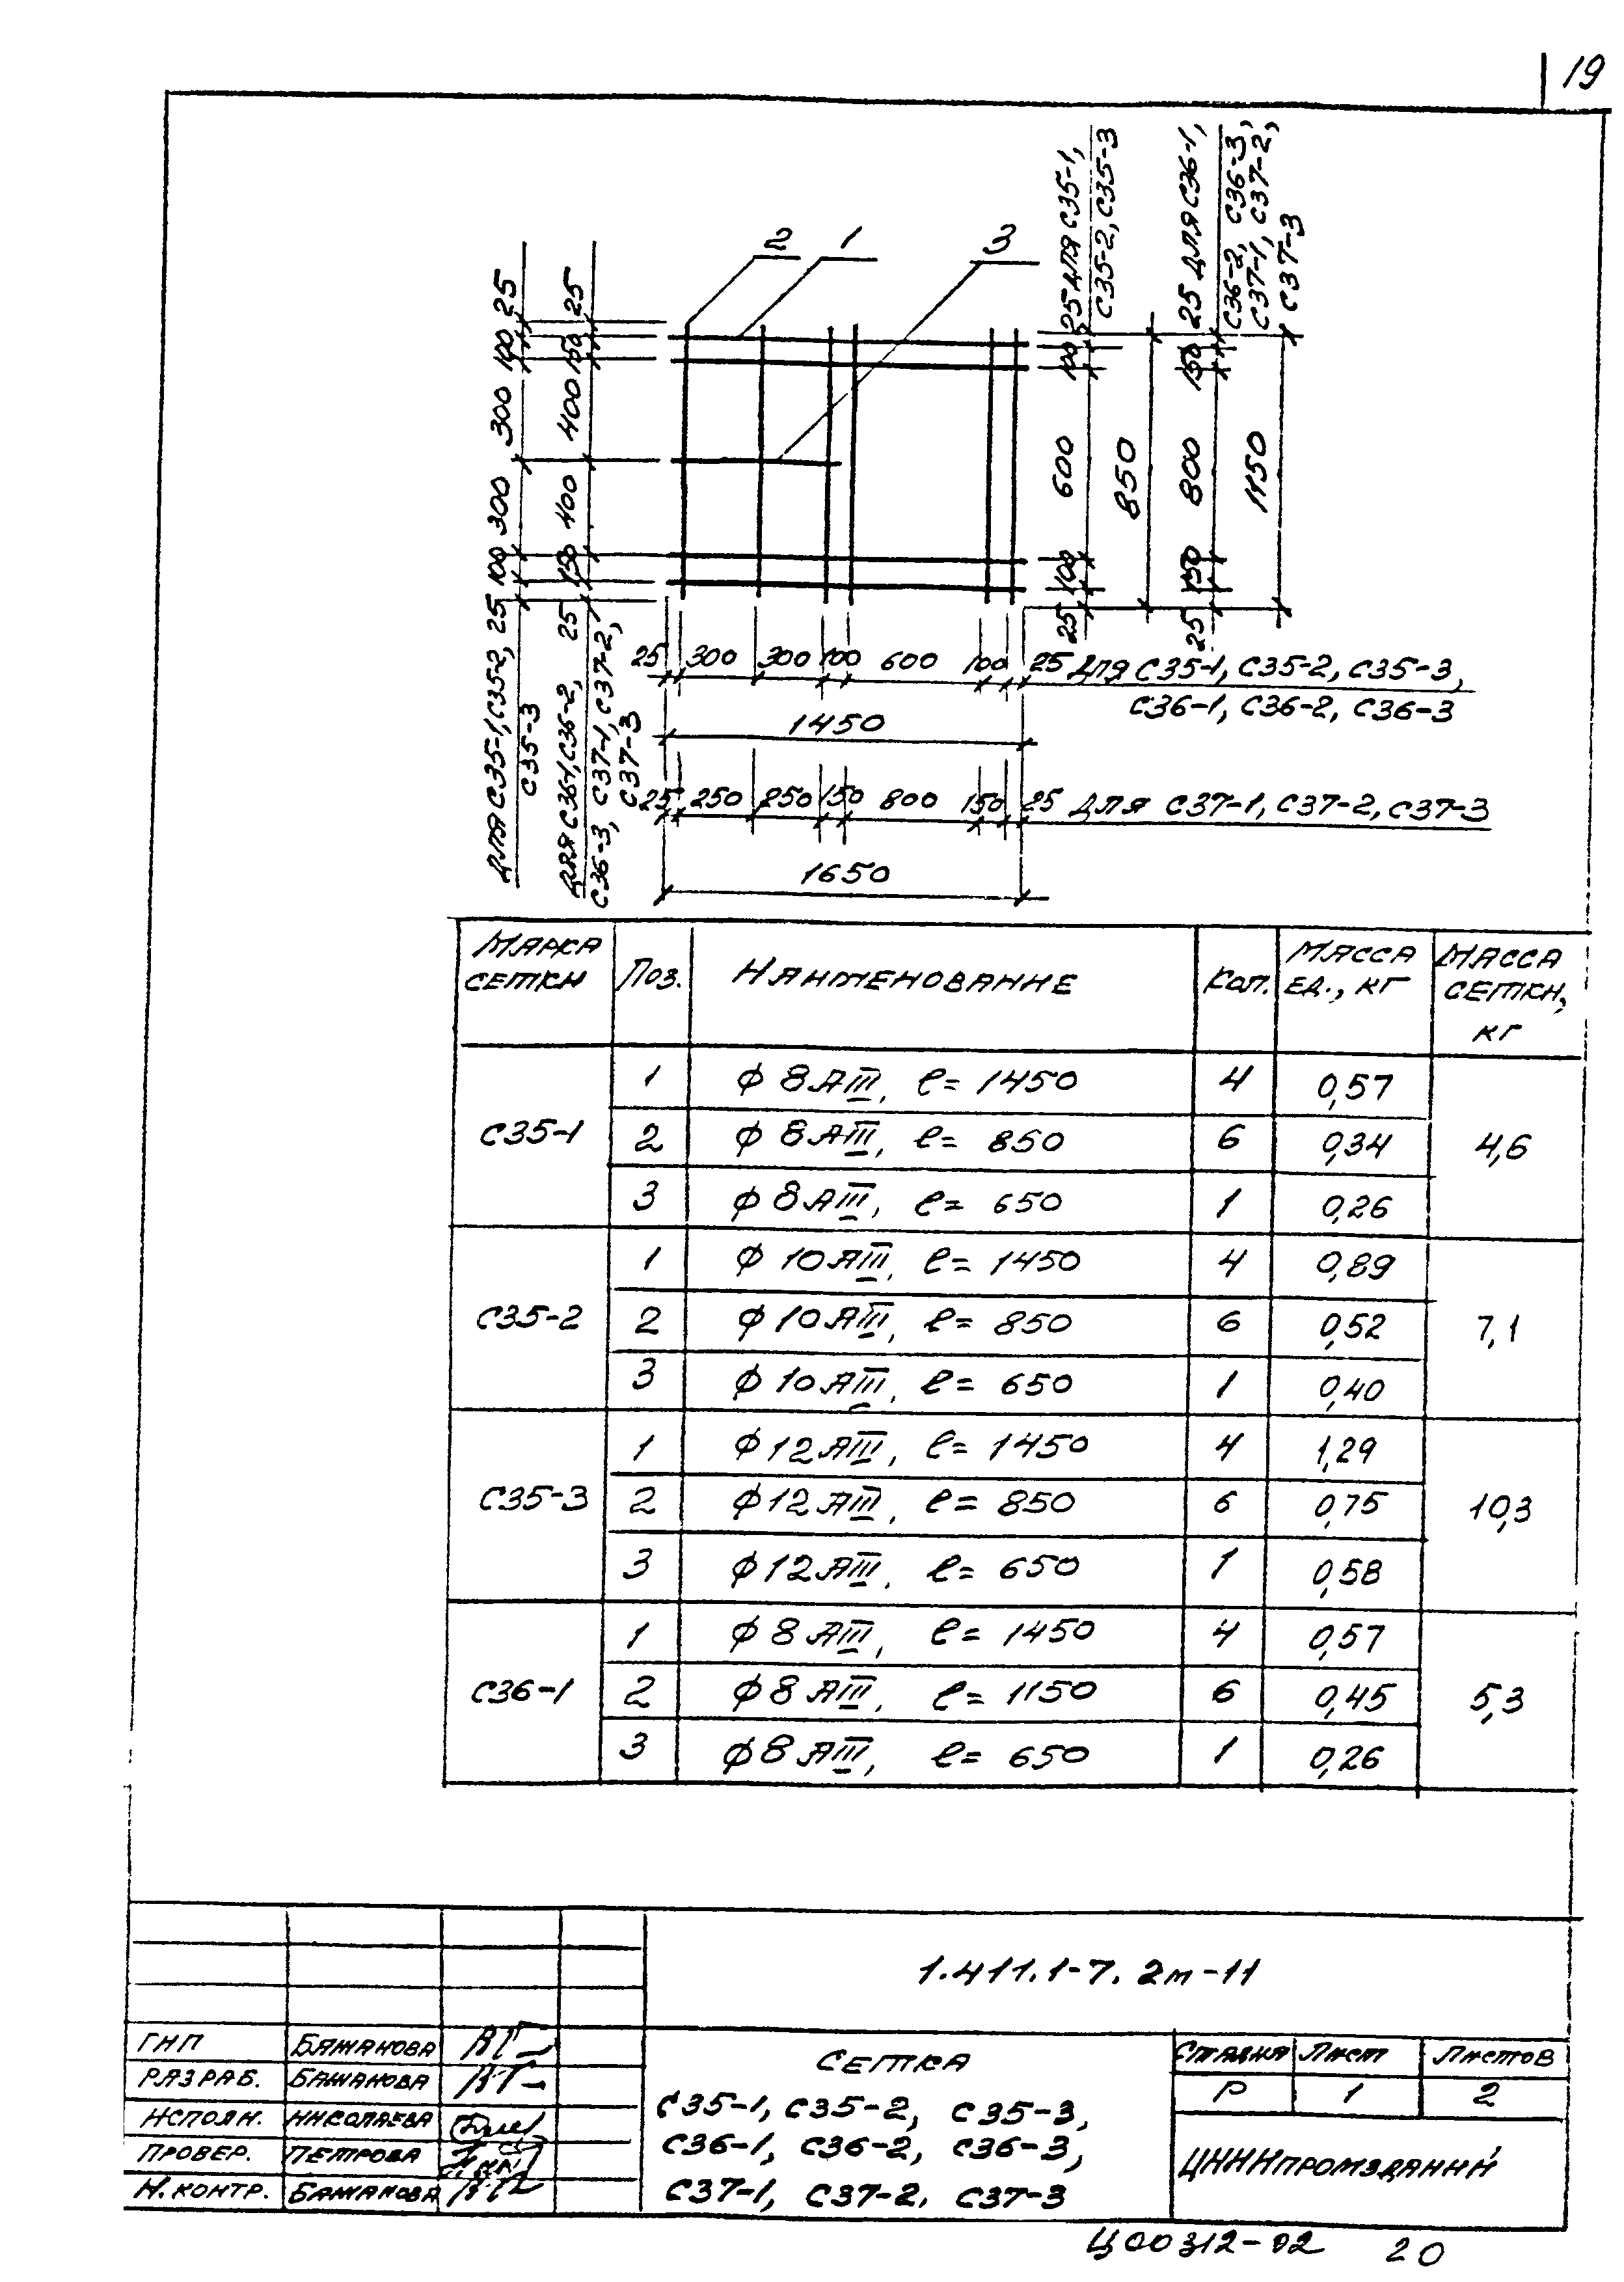 19
2 1 3
25 100 300 300 100 25 для С35-1, С35-2,
С35-3
25 150 400 400 150 25 для С36-1, С36-2,
С36-3, С37-1, С37-2,
С37-3
25 для С35-1,
С35-2, С35-3
100 600 100 25
850
25 для С36-1,
С36-2, С36-3,
С37-1, С37-2,
С37-3
150 800 150 25
1150
25 300 300 100 600 100 25 для С35-1, С35-2, С35-3,
С36-1, С36-2, С36-3
1450
25 250 250 150 800 150 25 для С37-1, С37-2, С37-3
1650
Марка сетки Поз. Наименование Кол. Масса ед., кг Масса сетки, кг
С35-1 4,6
1 ϕ 8 АIII, ℓ= 1450 4 0,57
2 ϕ 8 АIII, ℓ= 850 6 0,34
3 ϕ 8 АIII, ℓ= 650 1 0,26
С35-2 7,1
1 ϕ 10 АIII, ℓ= 1450 4 0,89
2 ϕ 10 АIII, ℓ= 850 6 0,52
3 ϕ 10 АIII, ℓ= 650 1 0,40
С35-3 10,3
1 ϕ 12 АIII, ℓ= 1450 4 1,29
2 ϕ 12 АIII, ℓ= 850 6 0,75
3 ϕ 12 АIII, ℓ= 650 1 0,58
С36-1 5,3
1 ϕ 8 АIII, ℓ= 1450 4 0,57
2 ϕ 8 АIII, ℓ= 1150 6 0,45
3 ϕ 8 АIII, ℓ= 650 1 0,26
1.411.1-7. 2м-11
ГИП Бажанова
Разраб. Бажанова
Исполн. Николаева
Провер. Петрова
Н. контр. Бажанова
Сетка
С35-1, С35-2, С35-3,
С36-1, С36-2, С36-3,
С37-1, С37-2, С37-3
Стадия Лист Листов
Р 1 2
ЦНИИпромзданий
Ц00312-02 20